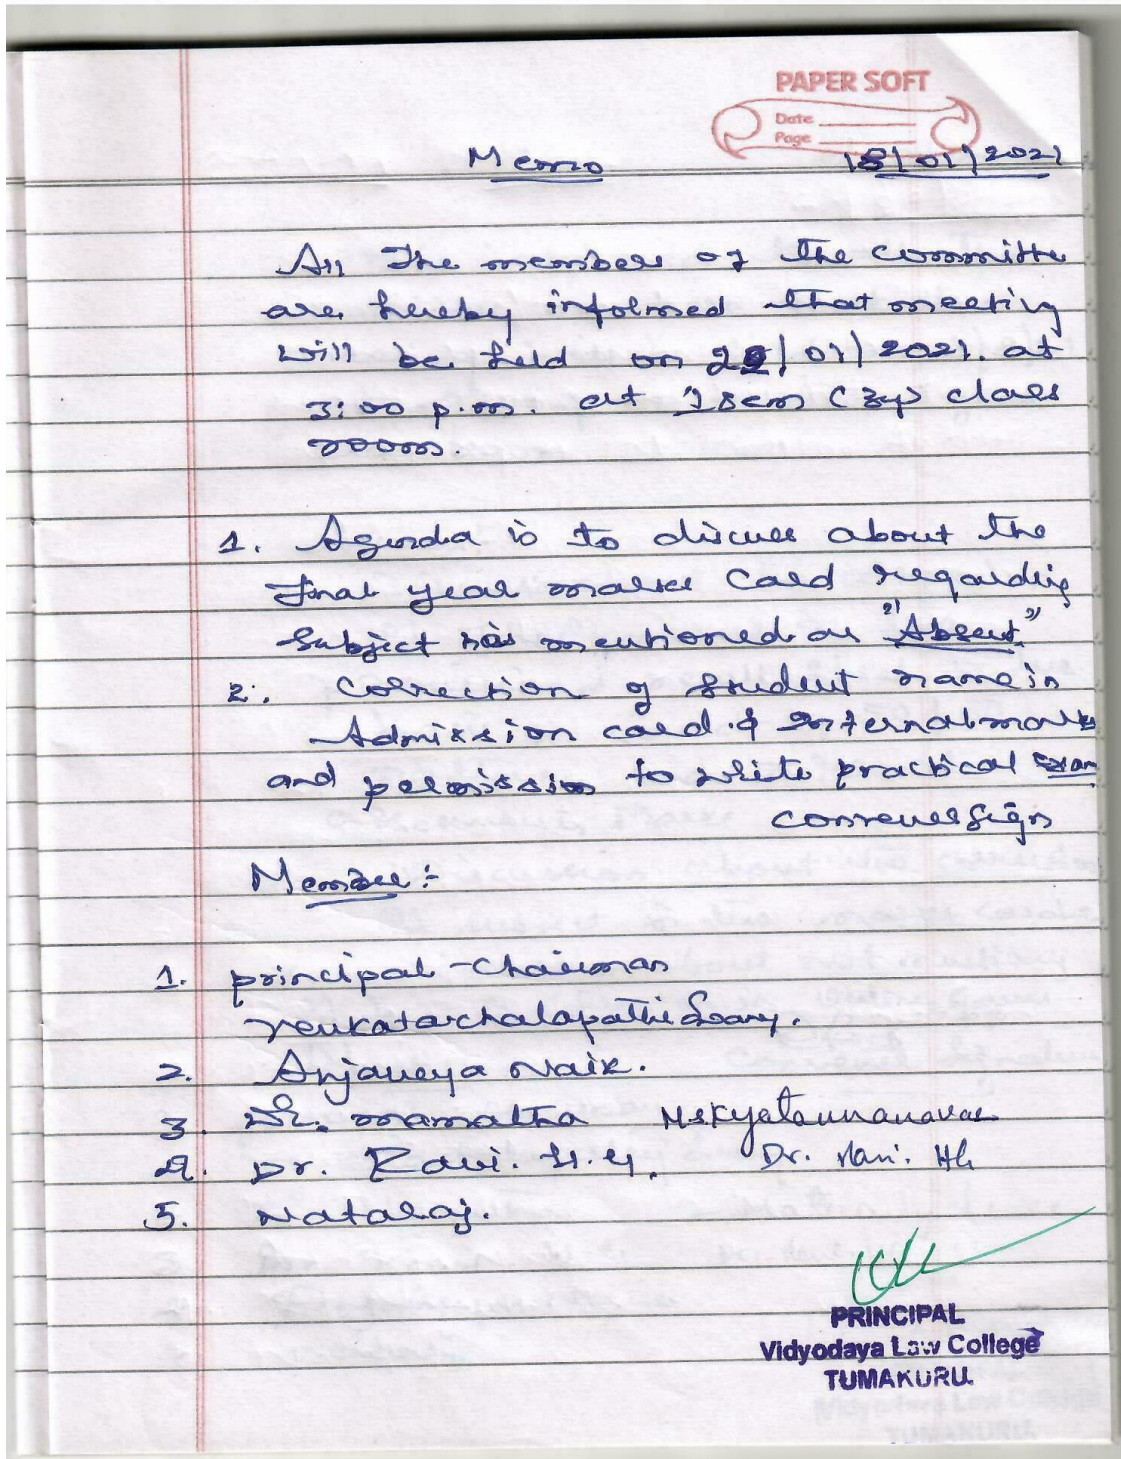 PAPER SOFT
Date
Page
Memo 18/01/2021
All The members of the committe
are hereby informed that meeting
will be held on 22/01/2021. at
3:00 p.m. at Isem (3yr) class
room.
1. Agenda is to discuss about the
final year marks card regarding
Subject has mentioned as "Absent"
2. Correction of student name in
Admission card & internal marks
and permission to write practical exam
convener sign
Member:-
1. principal - Chairman
Venkatarchalapathi Swamy.
2. Anjaneya Naik.
3. Dr. mamatha
4. Dr. Ravi. H.Y. Dr.
5. Nataraj.
PRINCIPAL
Vidyodaya Law College
TUMAKURU.